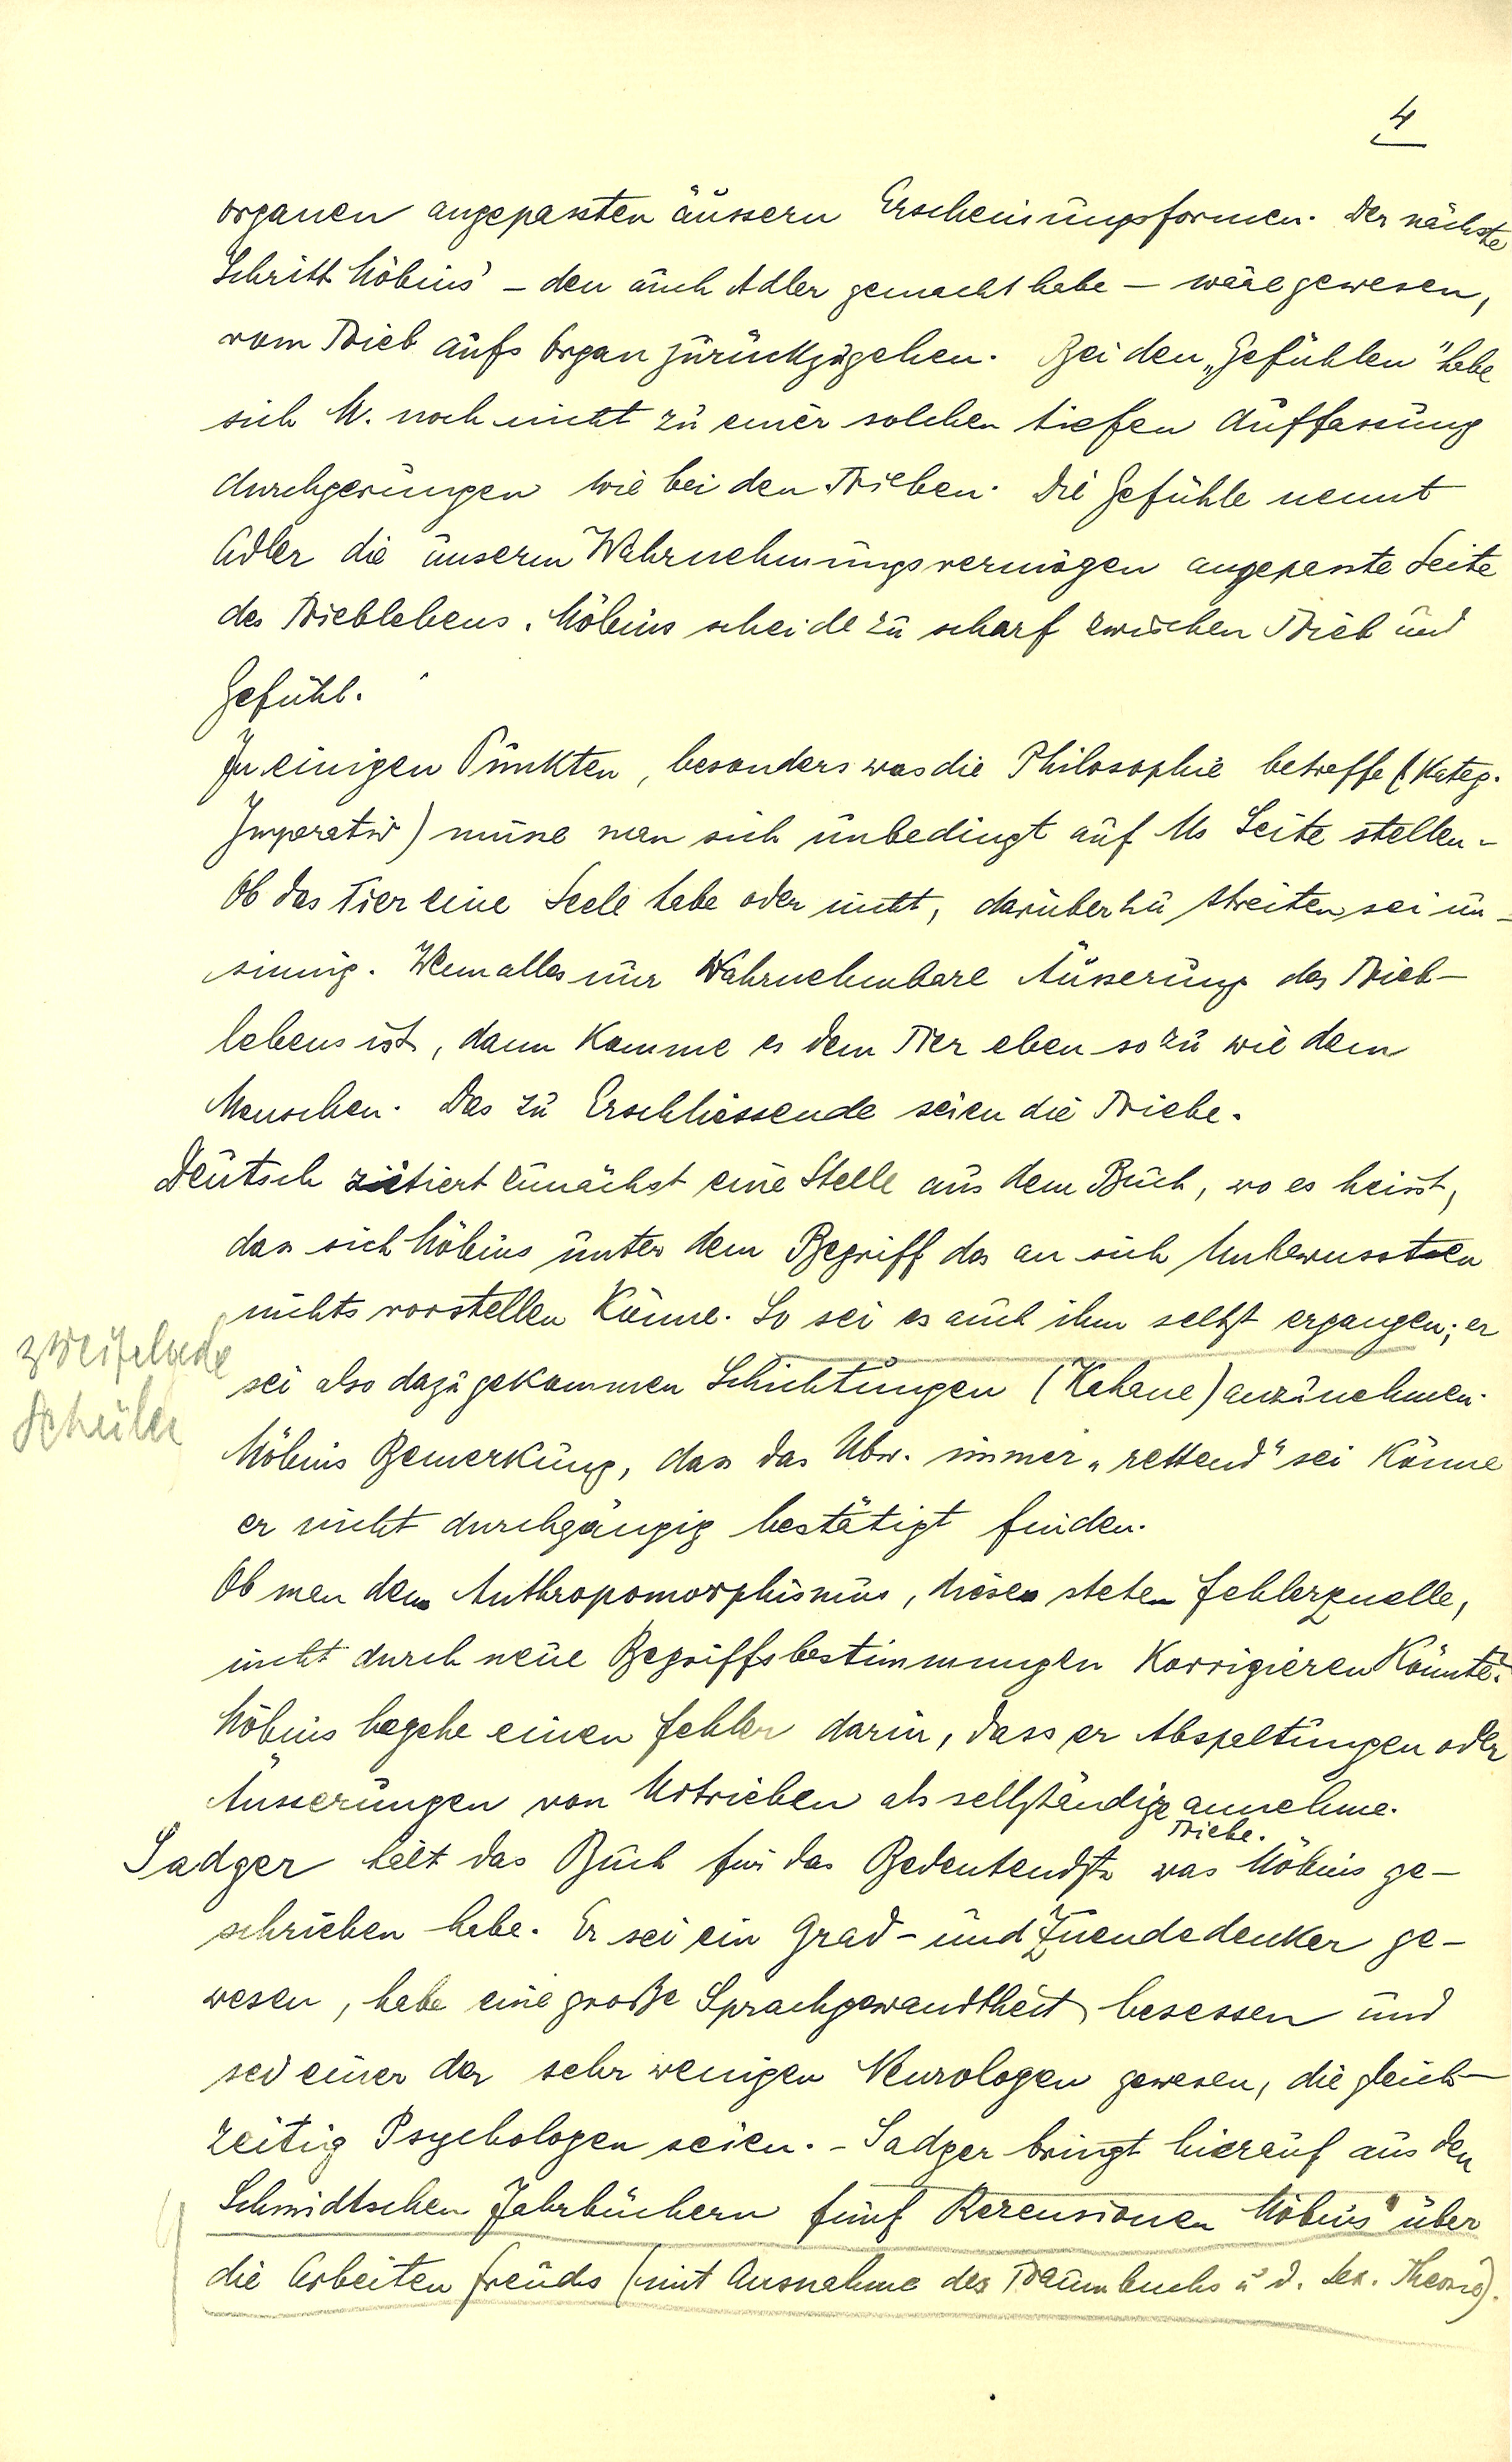 4
organen angepassten äussern Erscheinungsformen. Der nächste
Schritt Möbius' – den auch Adler gemacht habe – wäre gewesen,
vom Trieb aufs Organ zurückzugehen. Bei den „Gefühlen" habe
sich M. noch nicht zu einer solchen tiefen Auffassung
durchgerungen wie bei den Trieben. Die Gefühle nennt
Adler die unserm Wahrnehmungsvermögen angepasste Seite
des Trieblebens. Möbius scheide zu scharf zwischen Trieb und
Gefühl.
In einigen Punkten, besonders was die Philosophie betreffe (Kateg.
Imperativ) müsse man sich unbedingt auf Ms Seite stellen.
Ob das Tier eine Seele habe oder nicht, darüber zu streiten sei un-
sinnig. Wenn alles nur Wahrnehmbare Äusserung des Trieb-
lebens ist, dann komme es dem Tier eben so zu wie dem
Menschen. Das zu Erschliessende seien die Triebe.
Deutsch zitiert zunächst eine Stelle aus dem Buch, wo es heisst,
dass sich Möbius unter dem Begriff des an sich Unbewussten
nichts vorstellen könne. So sei es auch ihm selbst ergangen; er
zweifelnde
sei also dazu gekommen Schichtungen (Kahane) anzunehmen.
Schüler
Möbius Bemerkung, dass das Ubw. immer „rettend" sei könne
er nicht durchgängig bestätigt finden.
Ob man den Anthropomorphismus, diese stete Fehlerquelle,
nicht durch neue Begriffsbestimmungen korrigieren könnte?
Möbius begehe einen Fehler darin, dass er Abspaltungen oder
Äusserungen von Urtrieben als selbständige annehme.
Triebe.
Sadger hält das Buch für das Bedeutendste was Möbius ge-
schrieben habe. Er sei ein Grad- und Zuendedenker ge-
wesen, habe eine große Sprachgewandtheit besessen und
sei einer der sehr wenigen Neurologen gewesen, die gleich-
zeitig Psychologen seien. – Sadger bringt hierauf aus den
Schmidtschen Jahrbüchern fünf Rezensionen Möbius' über
die Arbeiten Freuds (mit Ausnahme des Traumbuchs u d. Sex. Theorie).